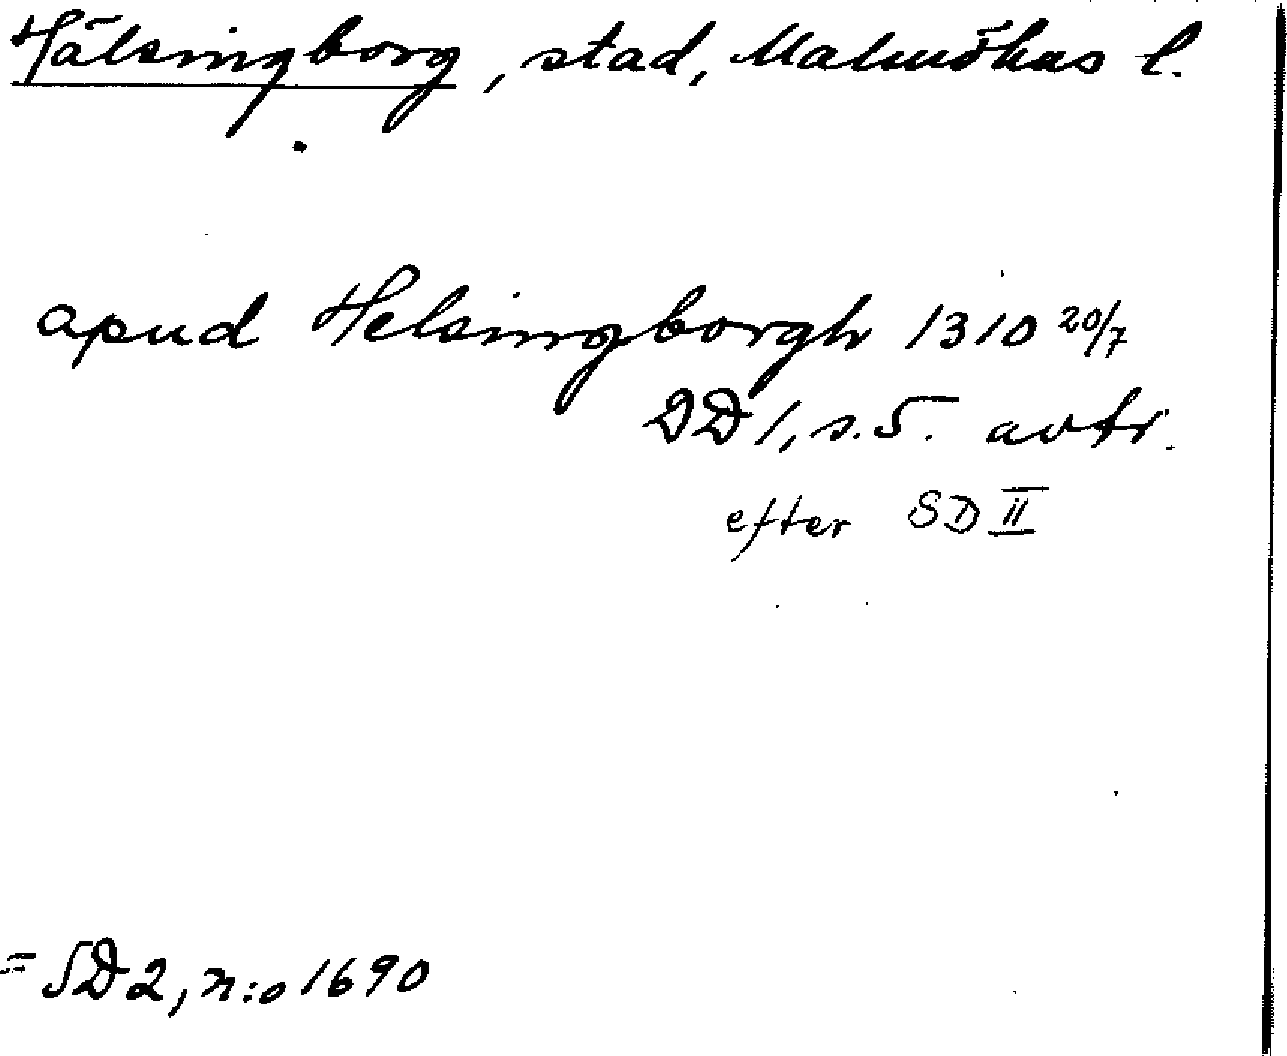 Hälsingborg, stad, Malmöhus l.
apud Helsingborgh 1310 20/7
DD 1, s. 5. avtr.
efter SD II
= SD 2, n:o 1690